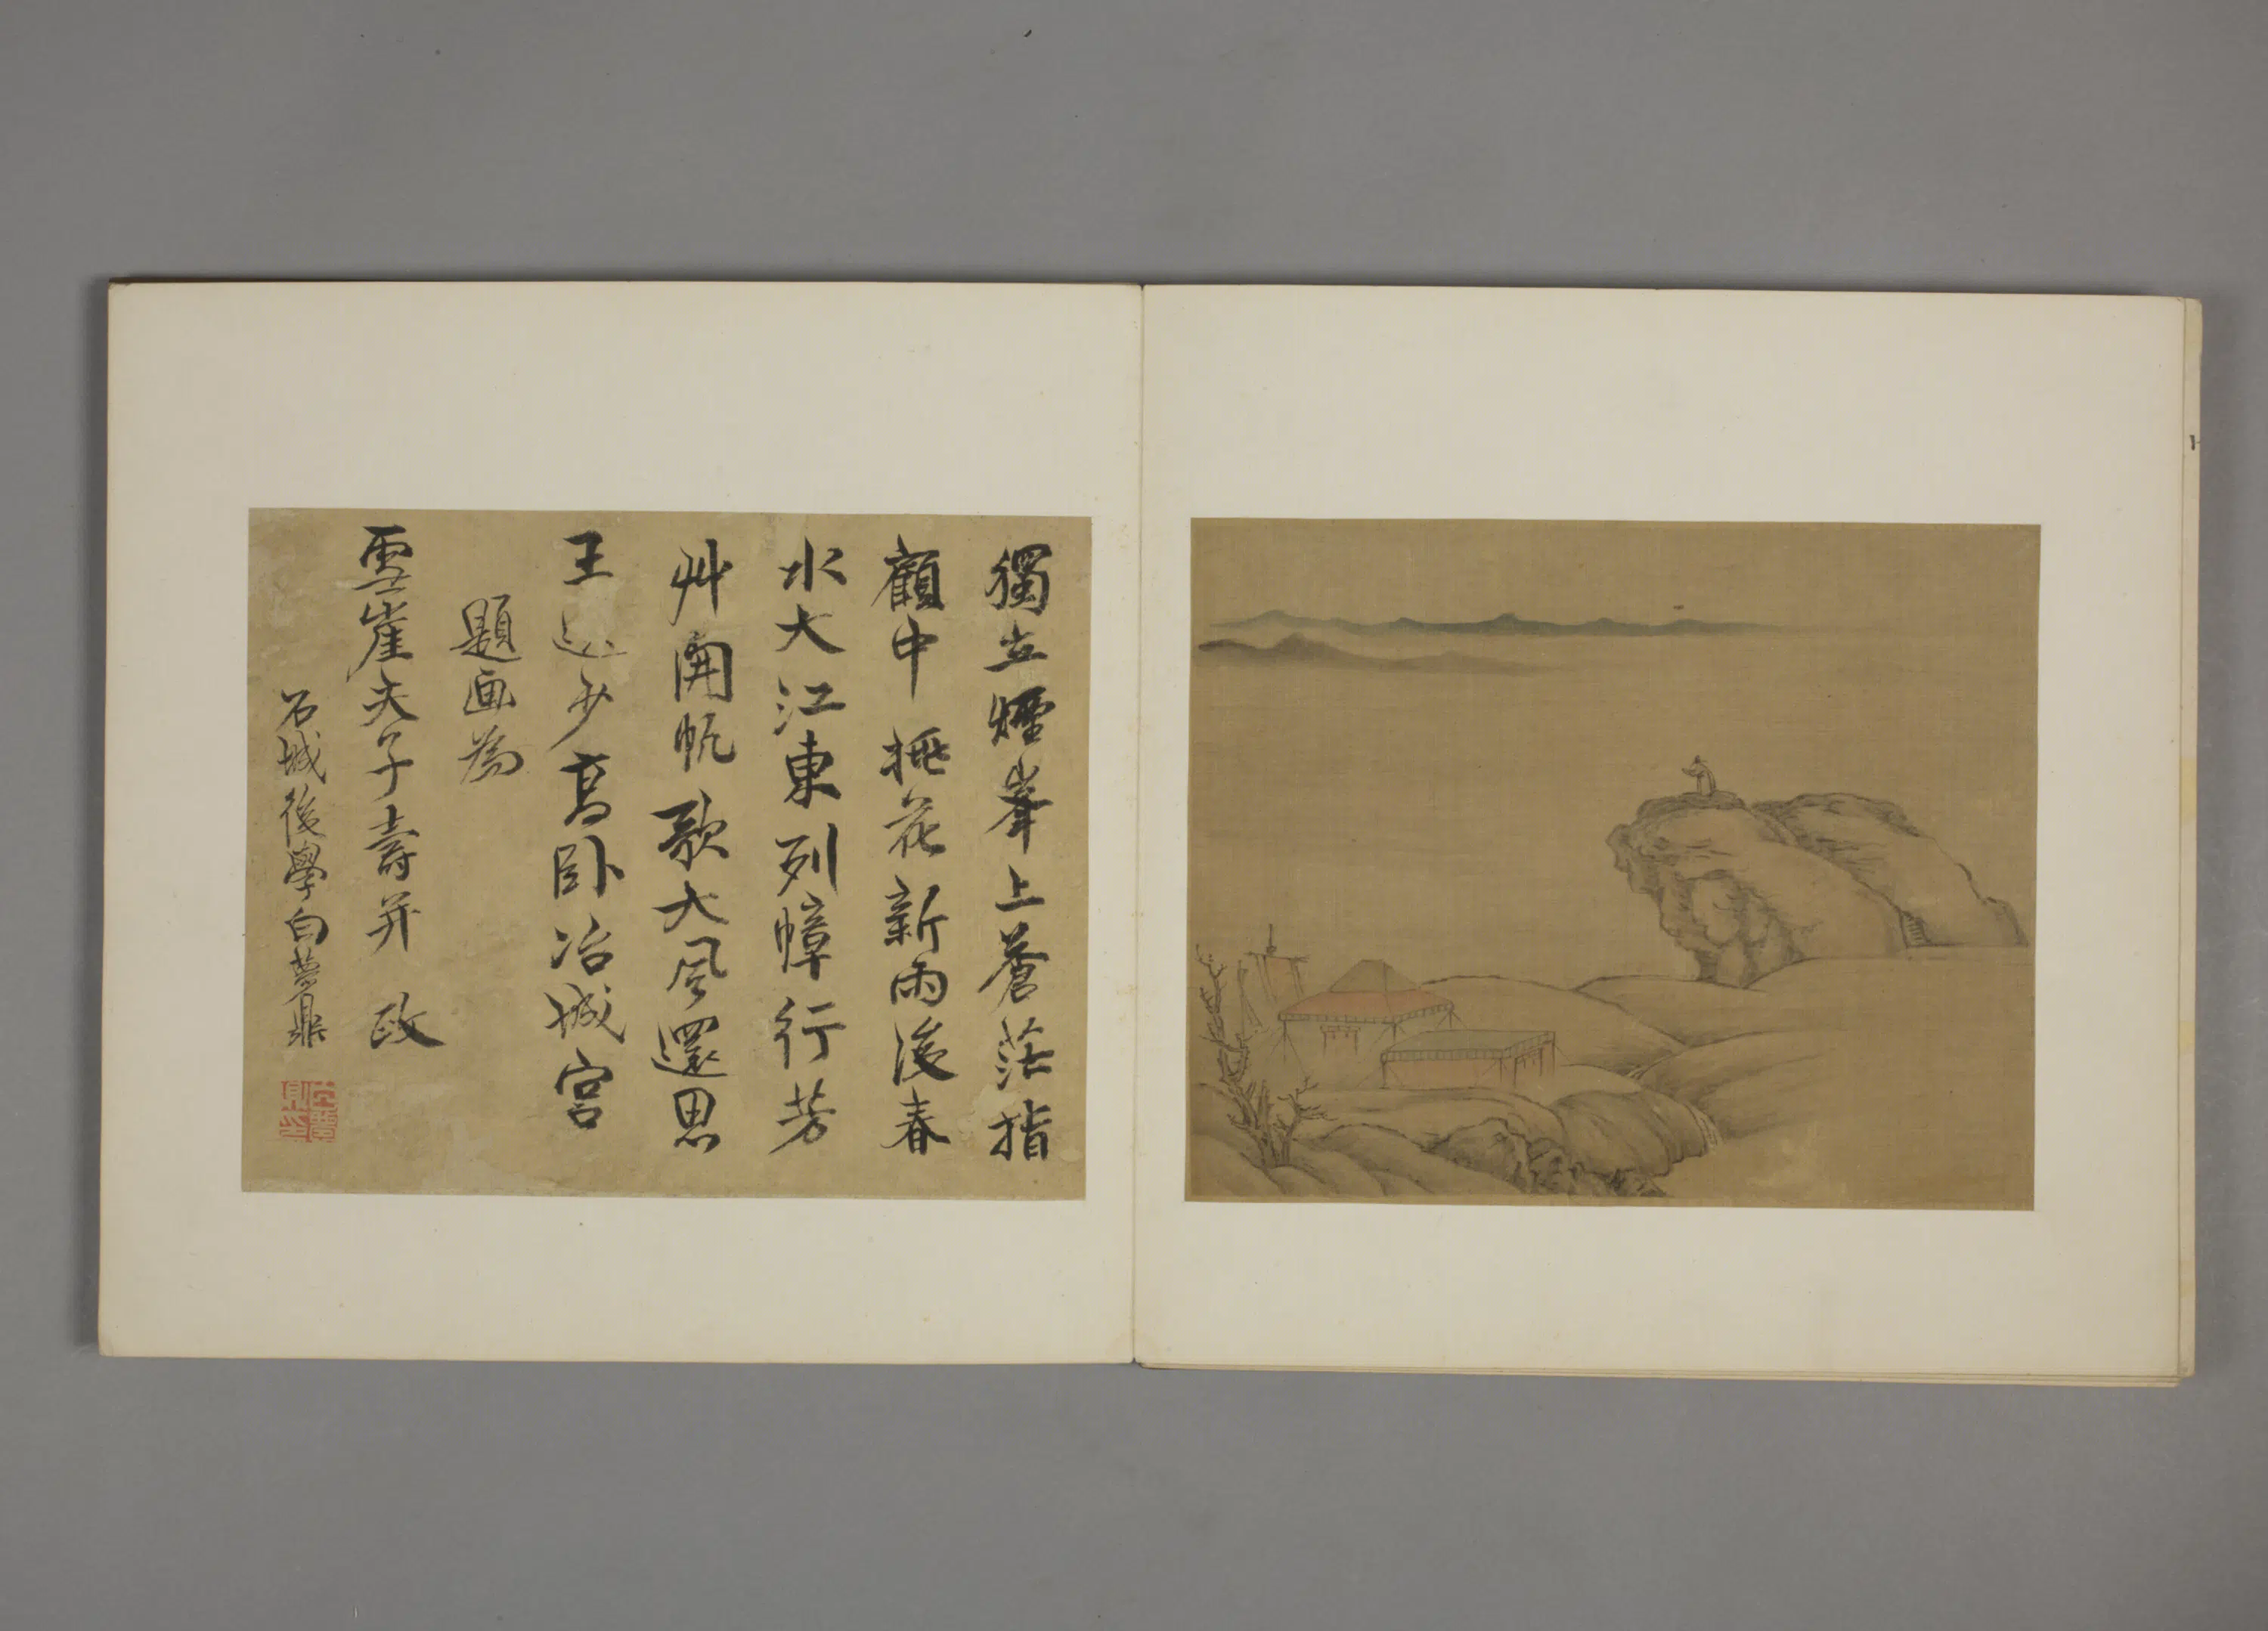 獨立煙峯上蒼茫指
顧中桃花新雨後春
水大江東列幛行芳
艸開帆歌大風還思
王少高卧冶城宮
題画為
雲崖夫子壽并政
石城後學白夢鼎